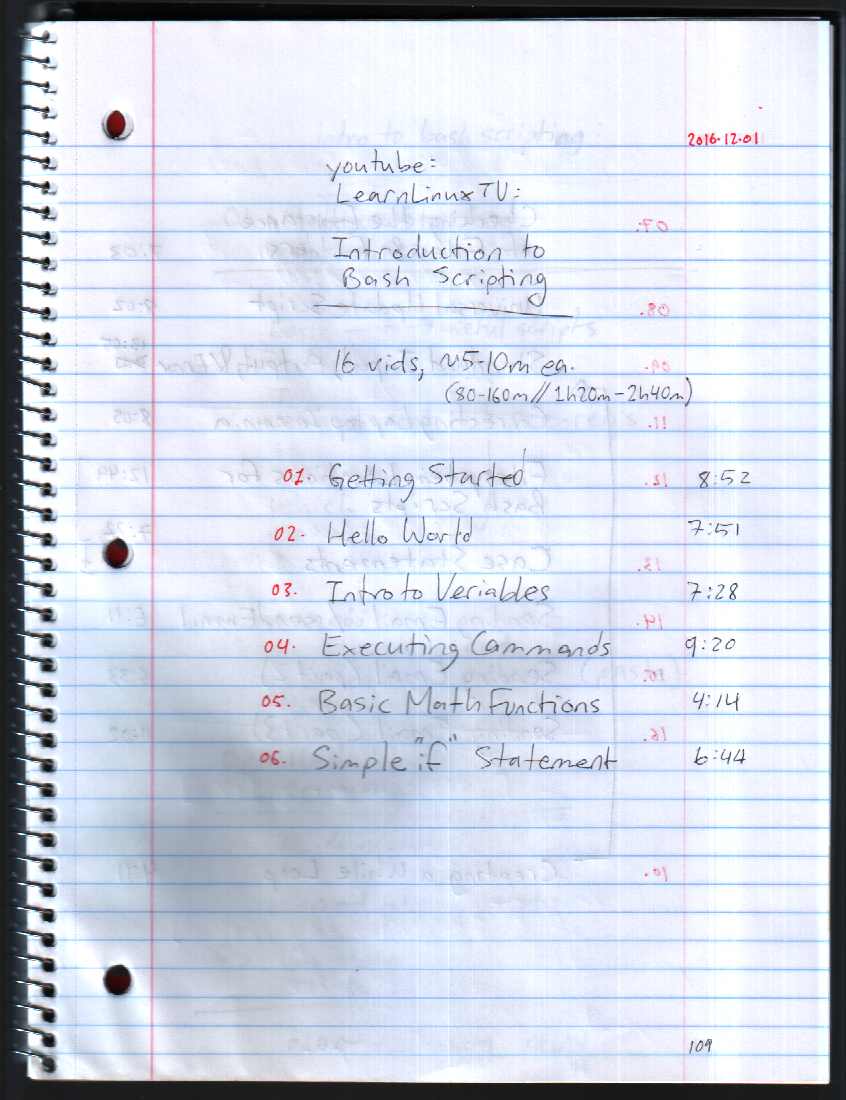 2016.12.01
youtube:
LearnLinuxTV:
Introduction to
Bash Scripting
16 vids, ~5-10m ea.
(80-160m // 1h20m-2h40m)
01. Getting Started 8:52
02. Hello World 7:51
03. Intro to Veriables 7:28
04. Executing Commands 9:20
05. Basic Math Functions 4:14
06. Simple "if" Statement 6:44
109